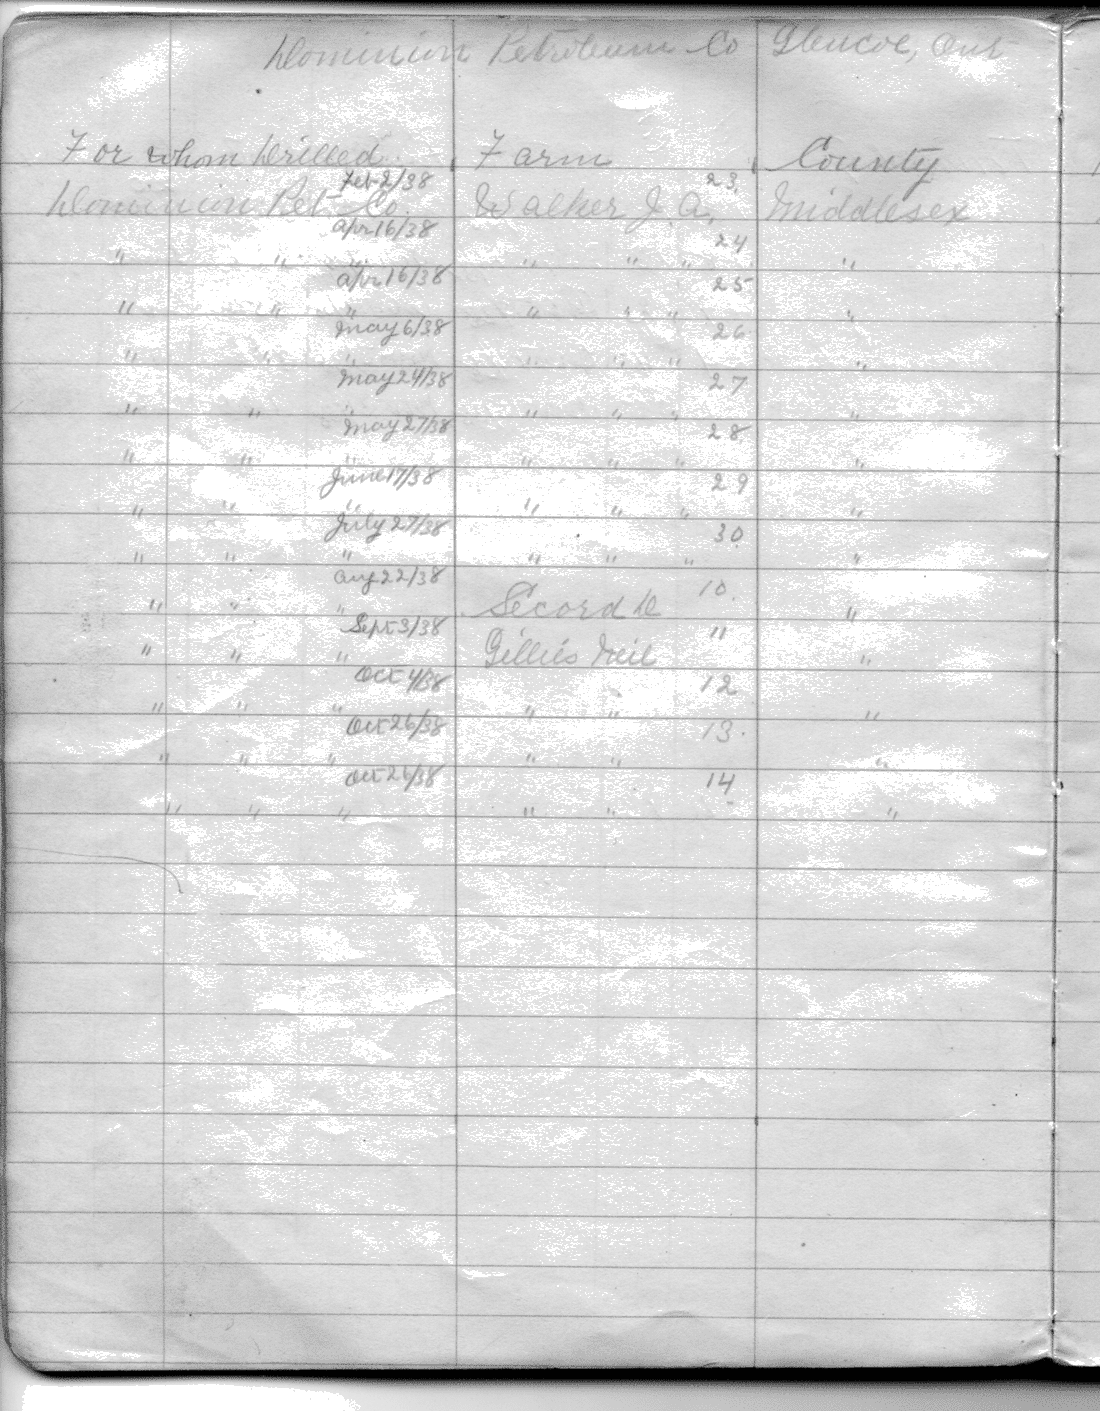 Dominion Petroleum Co Glencoe, Ont
For whom Drilled Farm County
Feb 2/38 23.
Dominion Pet Co. Walker J. A. Middlesex
Apr 16/38 24
" " " " " " "
Apr 16/38 25
" " " " " " "
May 6/38 26
" " " " " " "
May 24/38 27
" " " " " " "
May 27/38 28
" " " " " " "
June 17/38 29
" " " " " " "
July 27/38 30
" " " " " " "
Aug 22/38 10.
" " " Secord D "
Sept 3/38 11
" " " Gillies Neil "
Oct 4/38 12
" " " " " "
Oct 26/38 13.
" " " " " "
Oct 26/38 14
" " " " " "